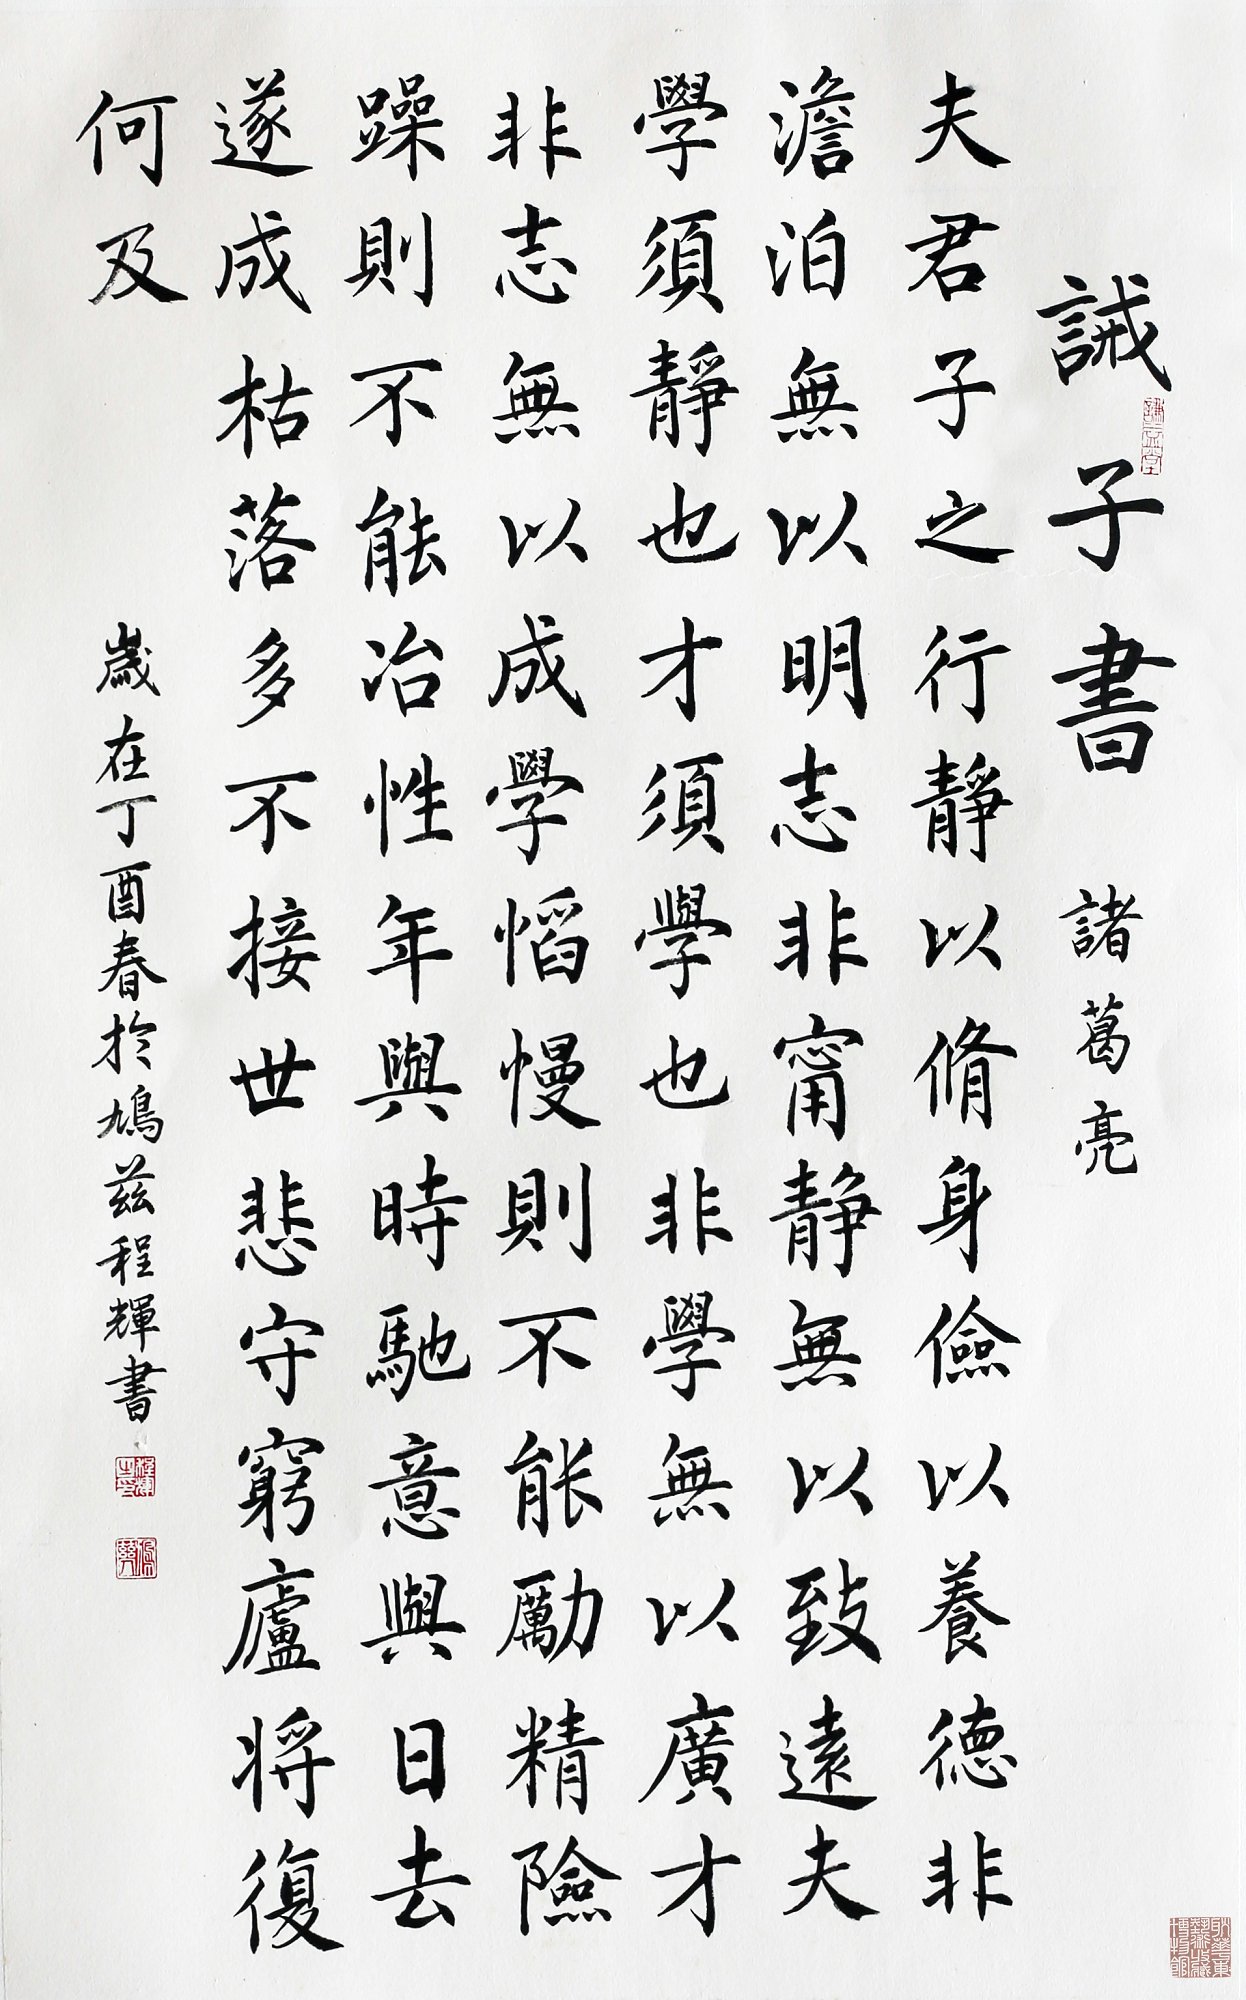 誡子書 諸葛亮
夫君子之行靜以脩身儉以養德非
澹泊無以明志非甯静無以致遠夫
學須靜也才須學也非學無以廣才
非志無以成學慆慢則不能勵精險
躁則不能冶性年與時馳意與日去
遂成枯落多不接世悲守窮廬将復
何及
歲在丁酉春於鳩茲程輝書
程輝之印
耿華東藝術收藏博物館